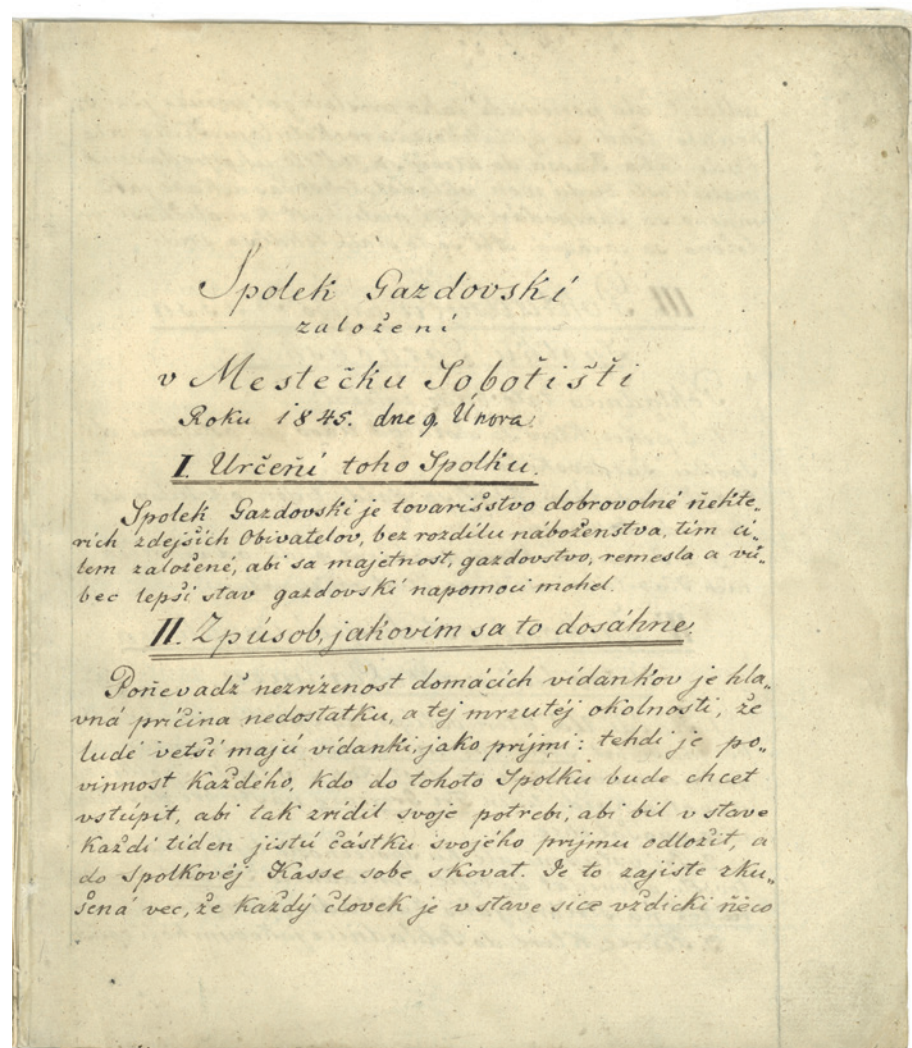 Spolek Gazdovskí
založení
v Mestečku Sobotišťi
Roku 1845. dne 9. Února.
I. Určeňí toho Spolku.
Spolek Gazdovskí je tovarišstvo dobrovolné ňekte„
rích zdejších Obivatelov, bez rozdílu náboženstva, tím ci„
lem založené, abi sa majetnost, gazdovstvo, remesla a vú„
bec lepší stav gazdovskí napomoci mohel.
II. Zpúsob, jakovím sa to dosáhne.
Poňevadž nezrízenost domácích vídankov je hla„
vná príčina nedostatku, a tej mrzutéj okolnosti, že
ludé vetší majú vídanki, jako príjmi: tehdi je po„
vinnost každého, kdo do tohoto Spolku bude chcet
vstúpit, abi tak zrídil svoje potrebi, abi bil v stave
každí tíden jistú částku svojého príjmu odložit, a
do Spolkovéj Kasse sobe skovat. Je to zajiste zku„
šená vec, že každý človek je v stave sice vždicki ňeco